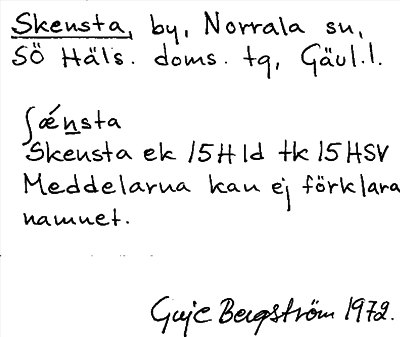 Skensta, by, Norrala sn,
SÖ Häls. doms. tg, Gävl.l.
ʃǽnsta
Skensta ek 15H1d tk 15HSV
Meddelarna kan ej förklara
namnet.
Guje Bergström 1972.